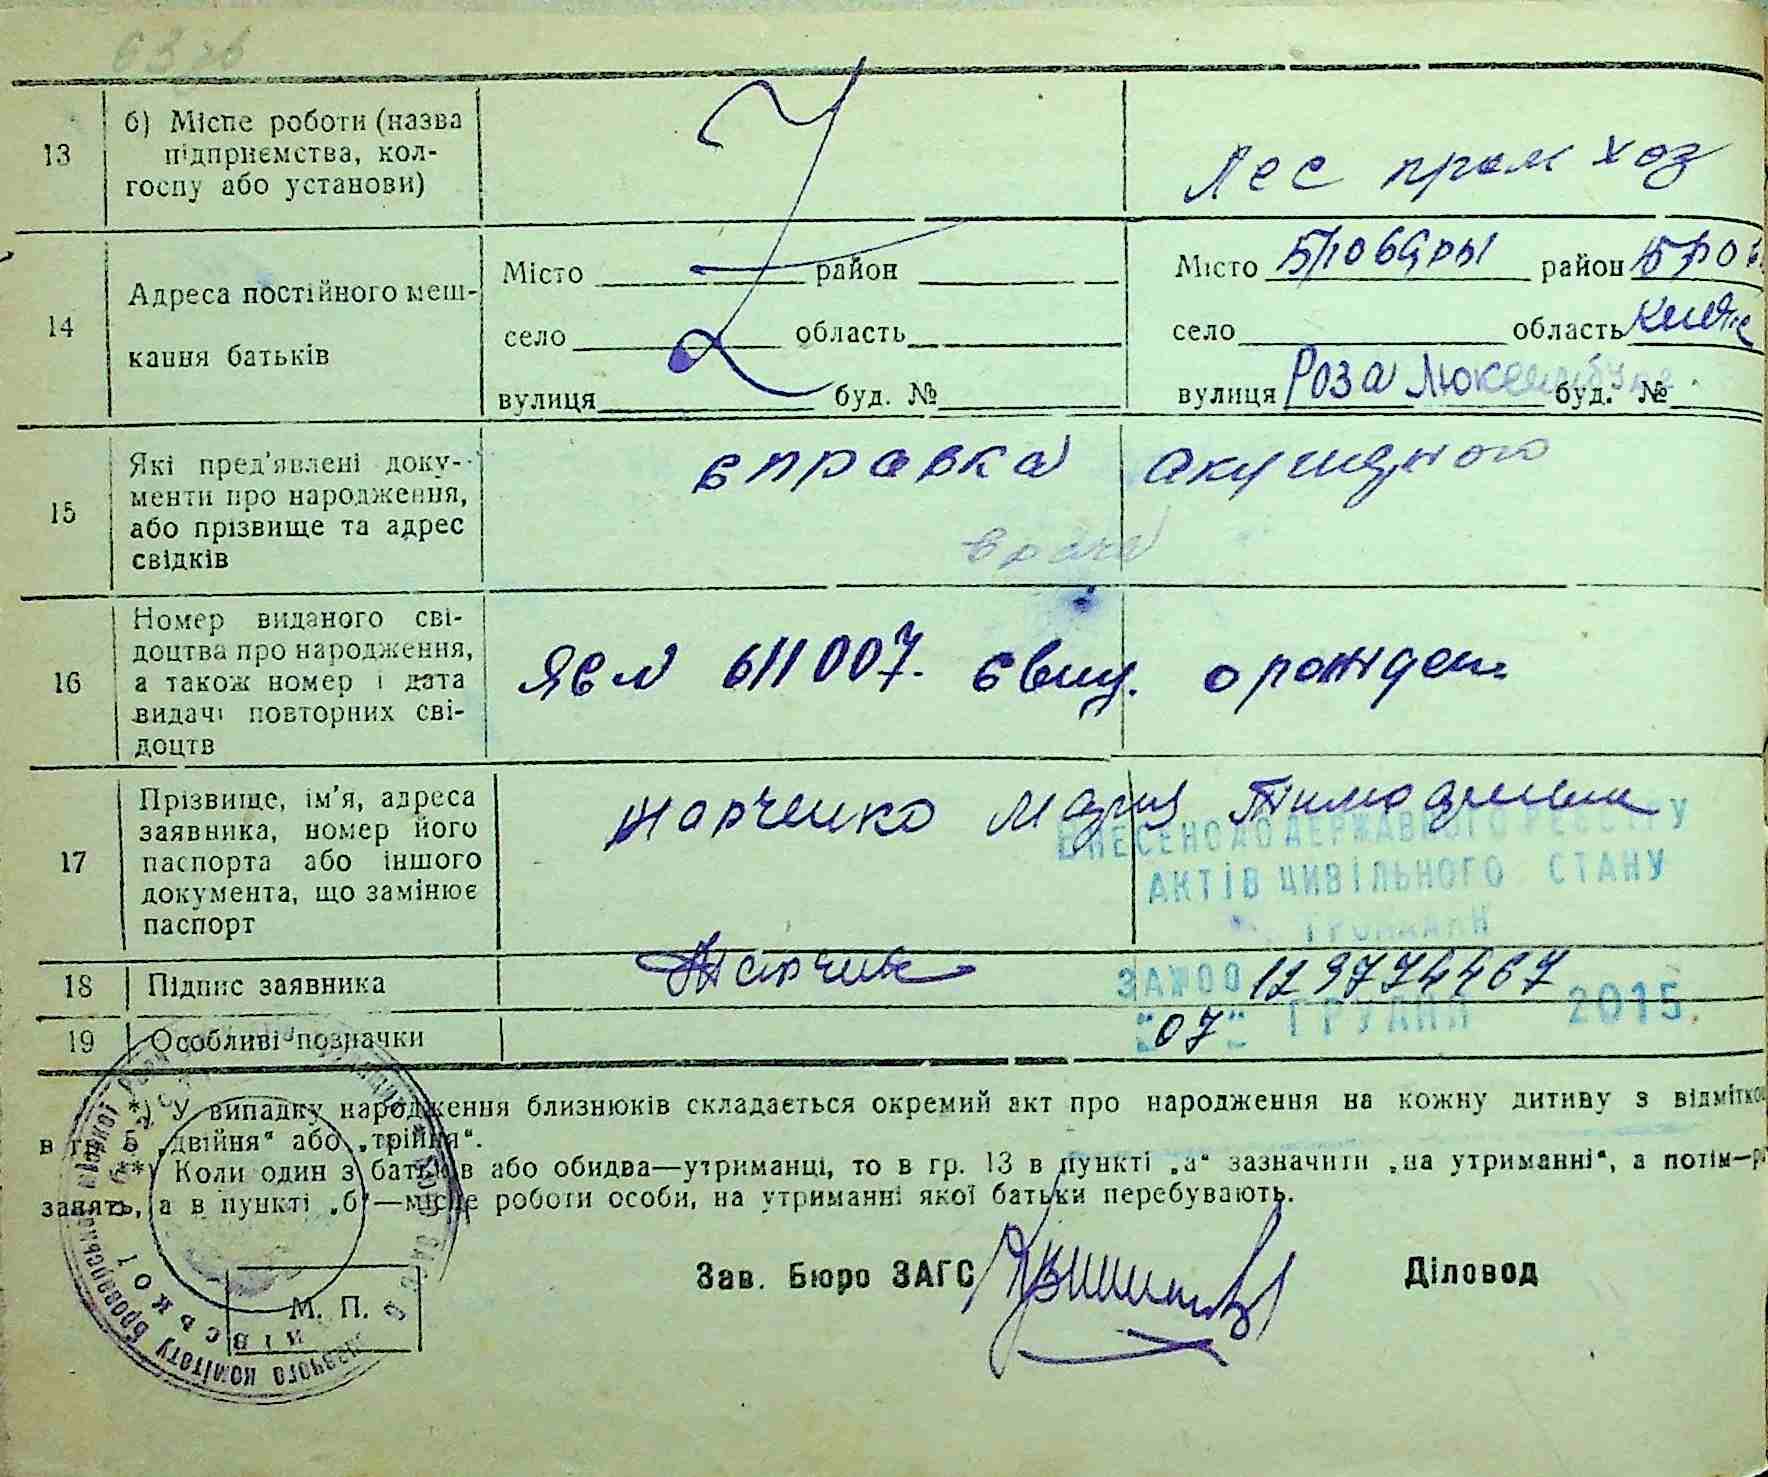 13
б) Місце роботи (назва
підприємства, кол-
госпу або установи)
Лес пром хоз
14
Адреса постійного меш-
кання батьків
Місто район
село область
вулиця буд. №
Місто Бровары район Бров
село область Киевс
вулиця Роза Люксембург буд. №
15
Які пред'явлені доку-
менти про народження,
або прізвище та адрес
свідків
справка акушерного
врача
16
Номер виданого сві-
доцтва про народження,
а також номер і дата
видачі повторних сві-
доцтв
611007. свид. о рожден.
17
Прізвище, ім'я, адреса
заявника, номер його
паспорта або іншого
документа, що замінює
паспорт
Мария
ВНЕСЕНО ДО ДЕРЖАВНОГО РЕЄСТРУ
АКТІВ ЦИВІЛЬНОГО СТАНУ
ГРОМАДЯН
18
Підпис заявника
ЗА №00 123774467
19
Особливі позначки
"07" ГРУДНЯ 2015.
*) У випадку народження близнюків складається окремий акт про народження на кожну дитину з відміткою
в гр. 5 „двійня" або „трійня".
**) Коли один з батьків або обидва—утриманці, то в гр. 13 в пункті „а" зазначити „на утриманні", а потім—р
занять, а в пункті „б"—місце роботи особи, на утриманні якої батьки перебувають.
Зав. Бюро ЗАГС
Діловод
М. П.